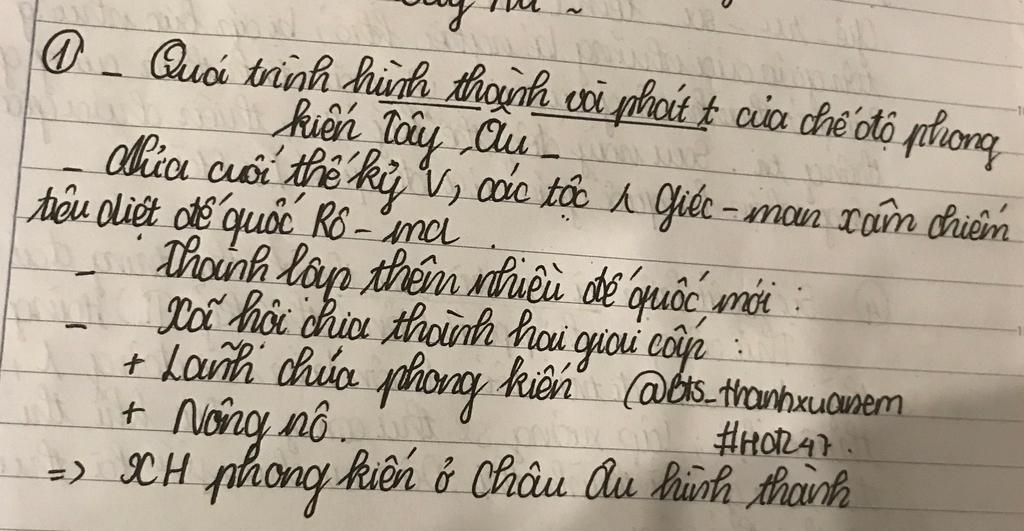 ① - Quá trình hình thành và phát t của chế độ phong
kiến Tây Âu -
- Nửa cuối thế kỷ V, các tộc λ Giéc-man xâm chiếm
tiêu diệt đế quốc Rô-ma.
- Thành lập thêm nhiều đế quốc mới :
- Xã hội chia thành hai giai cấp :
+ Lãnh chúa phong kiến @bts_thanhxuanem
+ Nông nô. #HOR47.
=> XH phong kiến ở Châu Âu hình thành